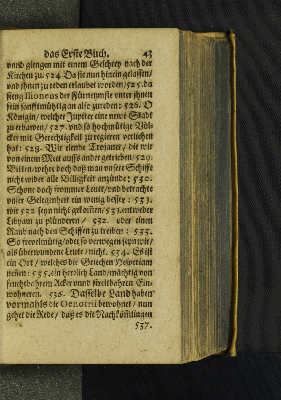 das Erste Buch. 43
vnnd giengen mit einem Geschrey nach der
Kirchen zu. 524. Da sie nun hinein gelassen/
vnd jhnen zu reden erlaubet worden/ 525. da
fieng Ilioneus der Fürnemste vnter jhnen
sein sanfftmütig an also zu reden: 526. O
Königin/ welcher Jupiter eine newe Stadt
zu erbawen/ 527. vnd so hochmütige Völ-
cker mit Gerechtigkeit zu regieren verliehen
hat: 528. Wir elende Trojaner/ die wir
von einem Meer auffs ander getrieben/ 529.
Bitten/ wehre doch daß man vnsere Schiffe
nicht wider alle Billigkeit anzünde: 530.
Schone doch frommer Leute/ vnd betrachte
vnser Gelegenheit ein wenig besser: 531.
wir 532. seyn nicht gekommen/ 531. entweder
Libyam zu plündern/ 532. oder einen
Raub nach den Schiffen zu treiben: 533.
So frevelmütig/ oder so verwegen seyn wir/
als vberwundene Leute/ nicht. 534. Es ist
ein Ort/ welches die Griechen Hesperiam
nennen: 535. ein herrlich Land/ mächtig von
fruchtbahrem Acker vnnd streitbahren Ein-
wohneren. 536. Dasselbe Land haben
vormahls die Oenotrii bewohnet/ nun
gehet die Rede/ daß es die Nachkömlingen
537.